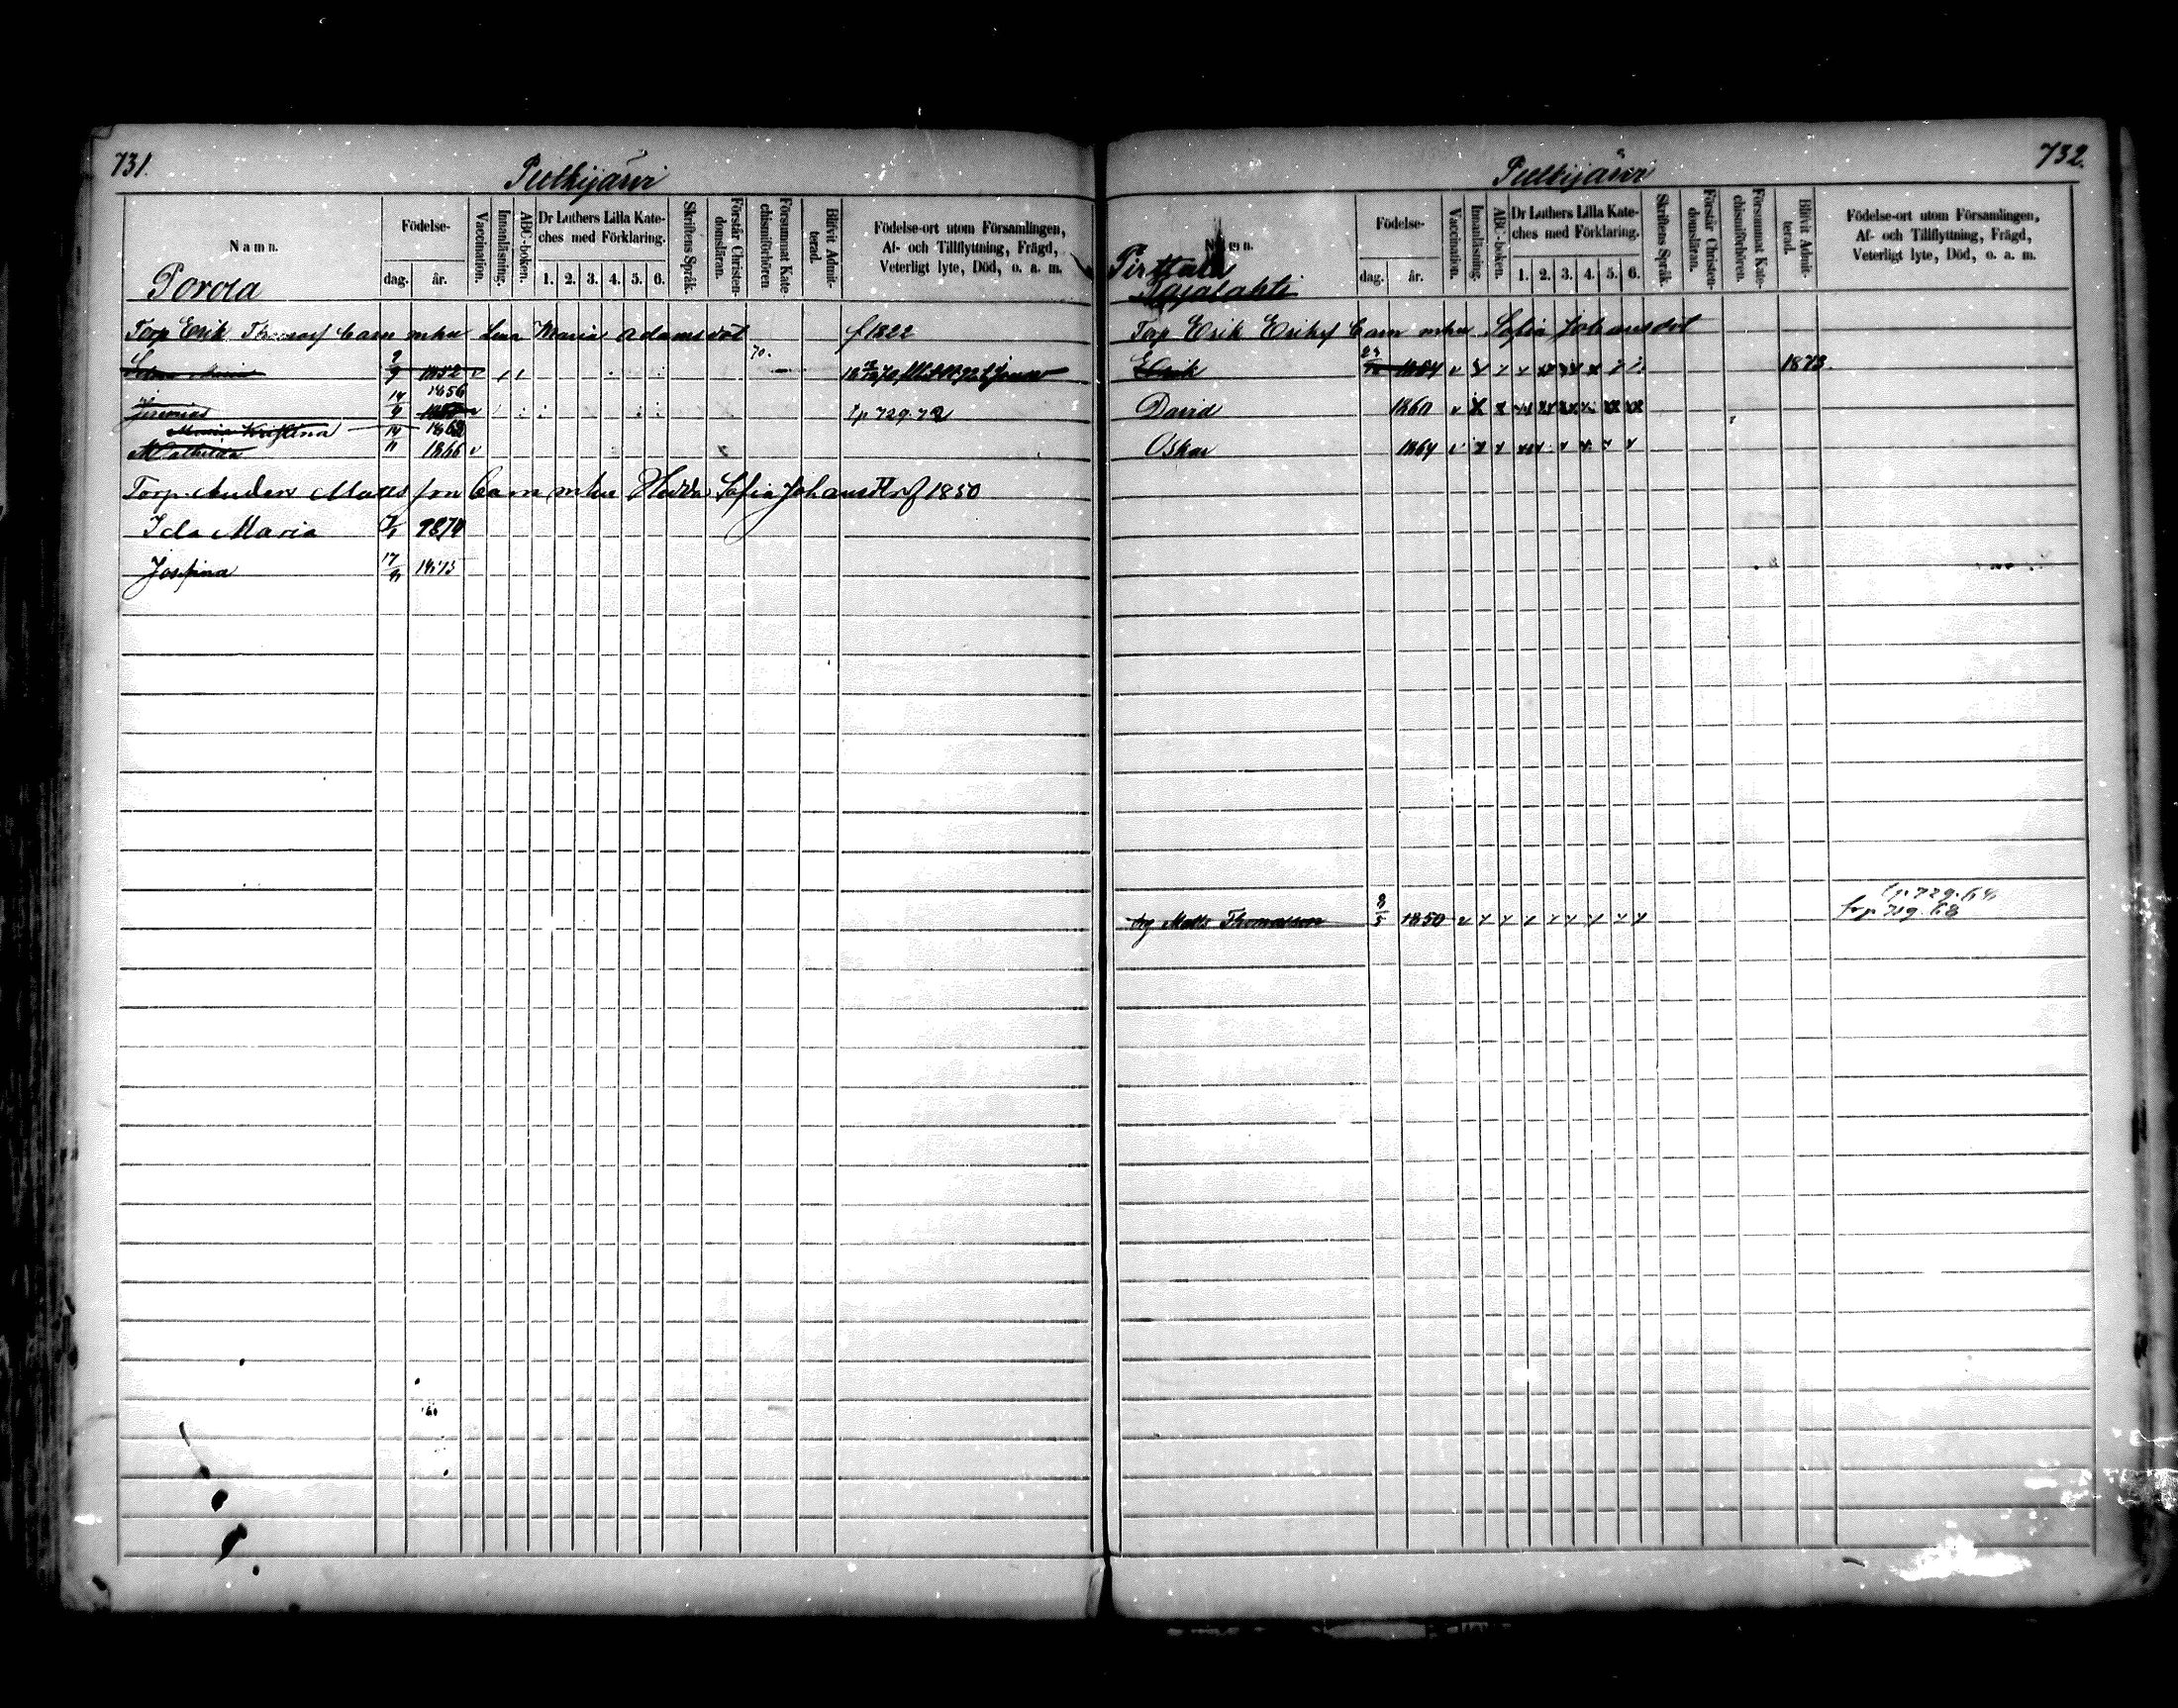 731.
Pulkijärvi
Namn.
Födelse-
dag.
år.
Vaccination.
Innanläsning.
ABC-boken.
Dr Luthers Lilla Kate-
ches med Förklaring.
1. 2. 3. 4. 5. 6.
Skriftens Språk.
Förstår Christen-
domsläran.
Försummat Kate-
chismiförhören
Blifvit Admit-
terad.
Födelse-ort utom Församlingen,
Af- och Tillflyttning, Frägd,
Veterligt lyte, Död, o. a. m.
Porola
Torp Erik Thomasf barn mhu Lena Maria Adamsdot f 1822
Maria 9 1852 v 70.
Jeremias 14/9 1856 t p 729. 72
Maria Kristina 14 1862
Mathilda 11 1866 v
Torp. Anders Matts son barn mhu Hedda Sofia Johansdtr f 1850
Ida Maria 1874
Josefina 17 1875
732.
Pulkijärvi
Namn.
Födelse-
dag.
år.
Vaccination.
Innanläsning.
ABC-boken.
Dr Luthers Lilla Kate-
ches med Förklaring.
1. 2. 3. 4. 5. 6.
Skriftens Språk.
Förstår Christen-
domsläran.
Försummat Kate-
chismiförhören.
Blifvit Admit-
terad.
Födelse-ort utom Församlingen,
Af- och Tillflyttning, Frägd,
Veterligt lyte, Död, o. a. m.
Pirttala
Rajalahti
Torp Erik Eriksf barn mhu Sofia Johansdot
Erik 1854 1873.
David 1860
Oskar 1864
t p 729. 64
drg Matts Thomasson 8/5 1850 fr p 719. 68